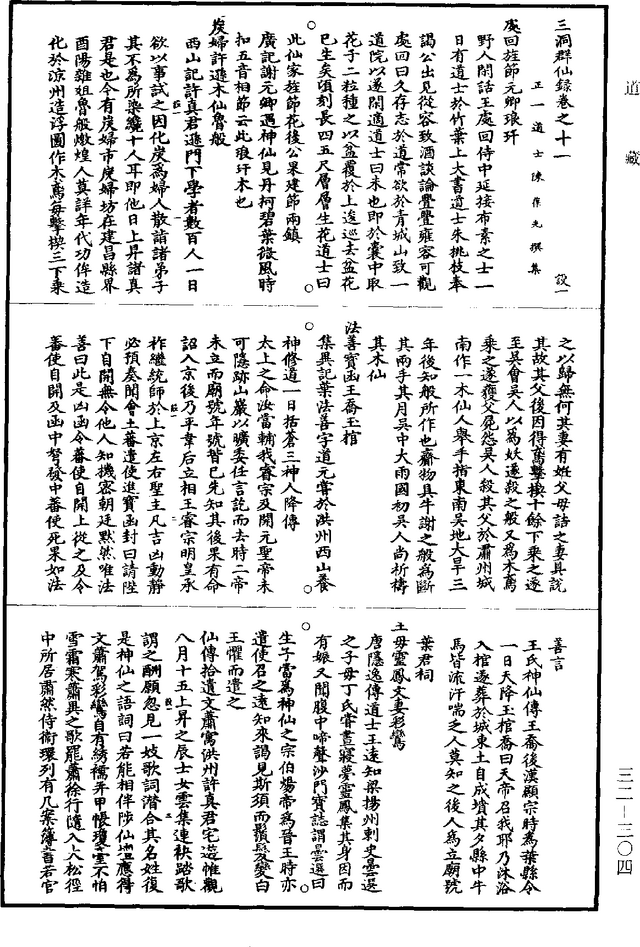 道藏
三洞群仙録卷之十一
設一
正一道士陳葆光撰集
處回旌節元卿琅玕
野人閒話王處回侍中延接布素之士一
日有道士於竹葉上大書道士朱桃枝奉
謁公出見從容致酒談論亹亹雍容可觀
處回曰久存志於道常欲於青城山致一
道院以遂閒適道士曰未也即於囊中取
花子二粒種之以盆覆於上逡巡去盆花
已生矣頃刻長四五尺層層生花道士曰
此仙家旌節花後公果建節兩鎮
廣記謝元卿遇神仙見丹柯碧葉微風時
扣五音相節云此琅玕木也
炭婦許遜木仙魯般
西山記許真君遜門下學者數百人一日
欲以事試之因化炭為婦人散詣諸弟子
其不為所染纔十人耳即他日上昇諸真
君是也今有炭婦市炭婦坊在建昌縣界
酉陽雜俎魯般燉煌人莫詳年代功侔造
化於涼州造浮圖作木鳶每擊楔三下乘
之以歸無何其妻有姙父母詰之妻具說
其故其父後因得鳶擊楔十餘下乘之遂
至吳會吳人以為妖遂殺之般又為木鳶
乘之遂獲父屍怨吳人殺其父於肅州城
南作一木仙人舉手指東南吳地大旱三
年後知般所作也齎物具牛謝之般為斷
其兩手其月吳中大雨國初吳人尚祈禱
其木仙
法善寶函王喬玉棺
集異記葉法善字道元嘗於洪州西山養
神修道一日括蒼三神人降傳
太上之命汝當輔我睿宗及開元聖帝未
可隱跡山巖以曠委任言訖而去時二帝
未立而廟號年號皆已先知其後果有命
詔入京後乃平韋后立相王睿宗明皇承
祚繼統師於上京左右聖主凡吉凶動静
必預奏聞會土蕃遣使進寶函封曰請陛
下自開無令他人知機密朝廷默然唯法
善曰此是凶函令蕃使自開上從之及令
蕃使自開及函中弩發中蕃使死果如法
善言
王氏神仙傳王喬後漢顯宗時為葉縣令
一日天降玉棺喬曰天帝召我耶乃沐浴
入棺遂葬於城東土自成墳其夕縣中牛
馬皆流汗喘乏人莫知之後人為立廟號
葉君祠
王母靈鳳文妻彩鸞
唐隱逸傳道士王遠知梁揚州刺史曇選
之子母丁氏嘗晝寢夢靈鳳集其身因而
有娠又聞腹中啼聲沙門寶誌謂曇選曰
生子當為神仙之宗伯煬帝為晉王時亦
遣使召之遠知來謁見斯須而鬚髮變白
王懼而遣之
仙傳拾遺文蕭寓洪州許真君宅遊帷觀
八月十五上昇之辰士女雲集連袂踏歌
謂之酬願忽見一妓歌詞潛合其名姓復
是神仙之語詞曰若能相伴陟仙壇應得
文蕭駕彩鸞自有綉襦并甲帳瓊臺不怕
雪霜寒蕭異之歌罷蕭徐行隨入大松徑
中所居肅然侍衛環列有几案簿書若官
三二—三〇四